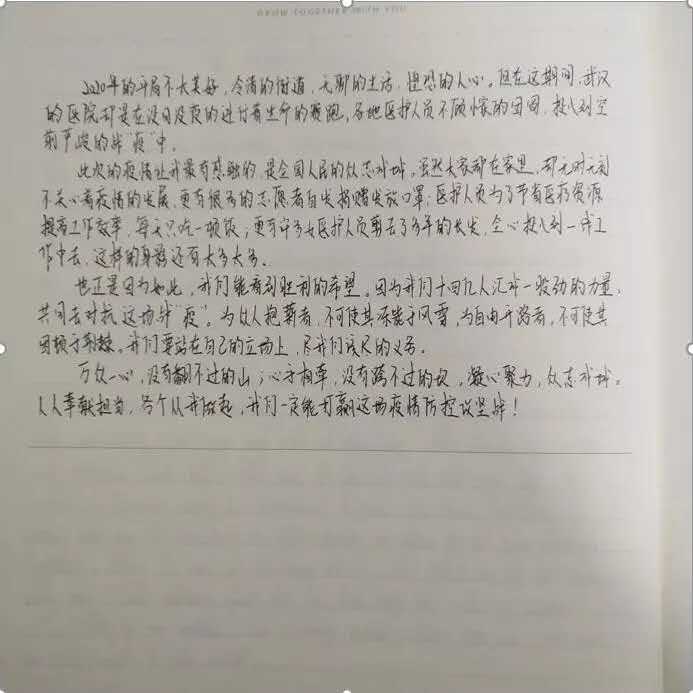 GROW TOGETHER WITH YOU
2020年的开局不太美好，冷清的街道，无聊的生活，惶恐的人心。但在这期间，武汉
的医院却是在没日没夜的进行着生命的赛跑，各地医护人员不顾小家的团圆，投入到空
前严峻的战“疫”中。
此次的疫情让我最有感触的，是全国人民的众志成城。虽然大家都在家里，却无时无刻
不关心着疫情的发展，更有很多的志愿者自发捐赠发放口罩；医护人员为了节省医疗资源
提高工作效率，每天只吃一顿饭；更有许多女医护人员剪去了多年的长发，全心投入到一线工
作中去，这样的身影还有太多太多。
也正是因为如此，我们能看到胜利的希望。因为我们十四亿人汇成一股劲的力量，
共同去对抗这场战“疫”。为众人抱薪者，不可使其冻毙于风雪，为自由开路者，不可使其
困顿于荆棘。我们要站在自己的立场上，尽我们该尽的义务。
万众一心，没有翻不过的山；心手相牵，没有跨不过的坎，凝心聚力，众志成城。
人人奉献担当，各个从我做起，我们一定能打赢这场疫情防控攻坚战！